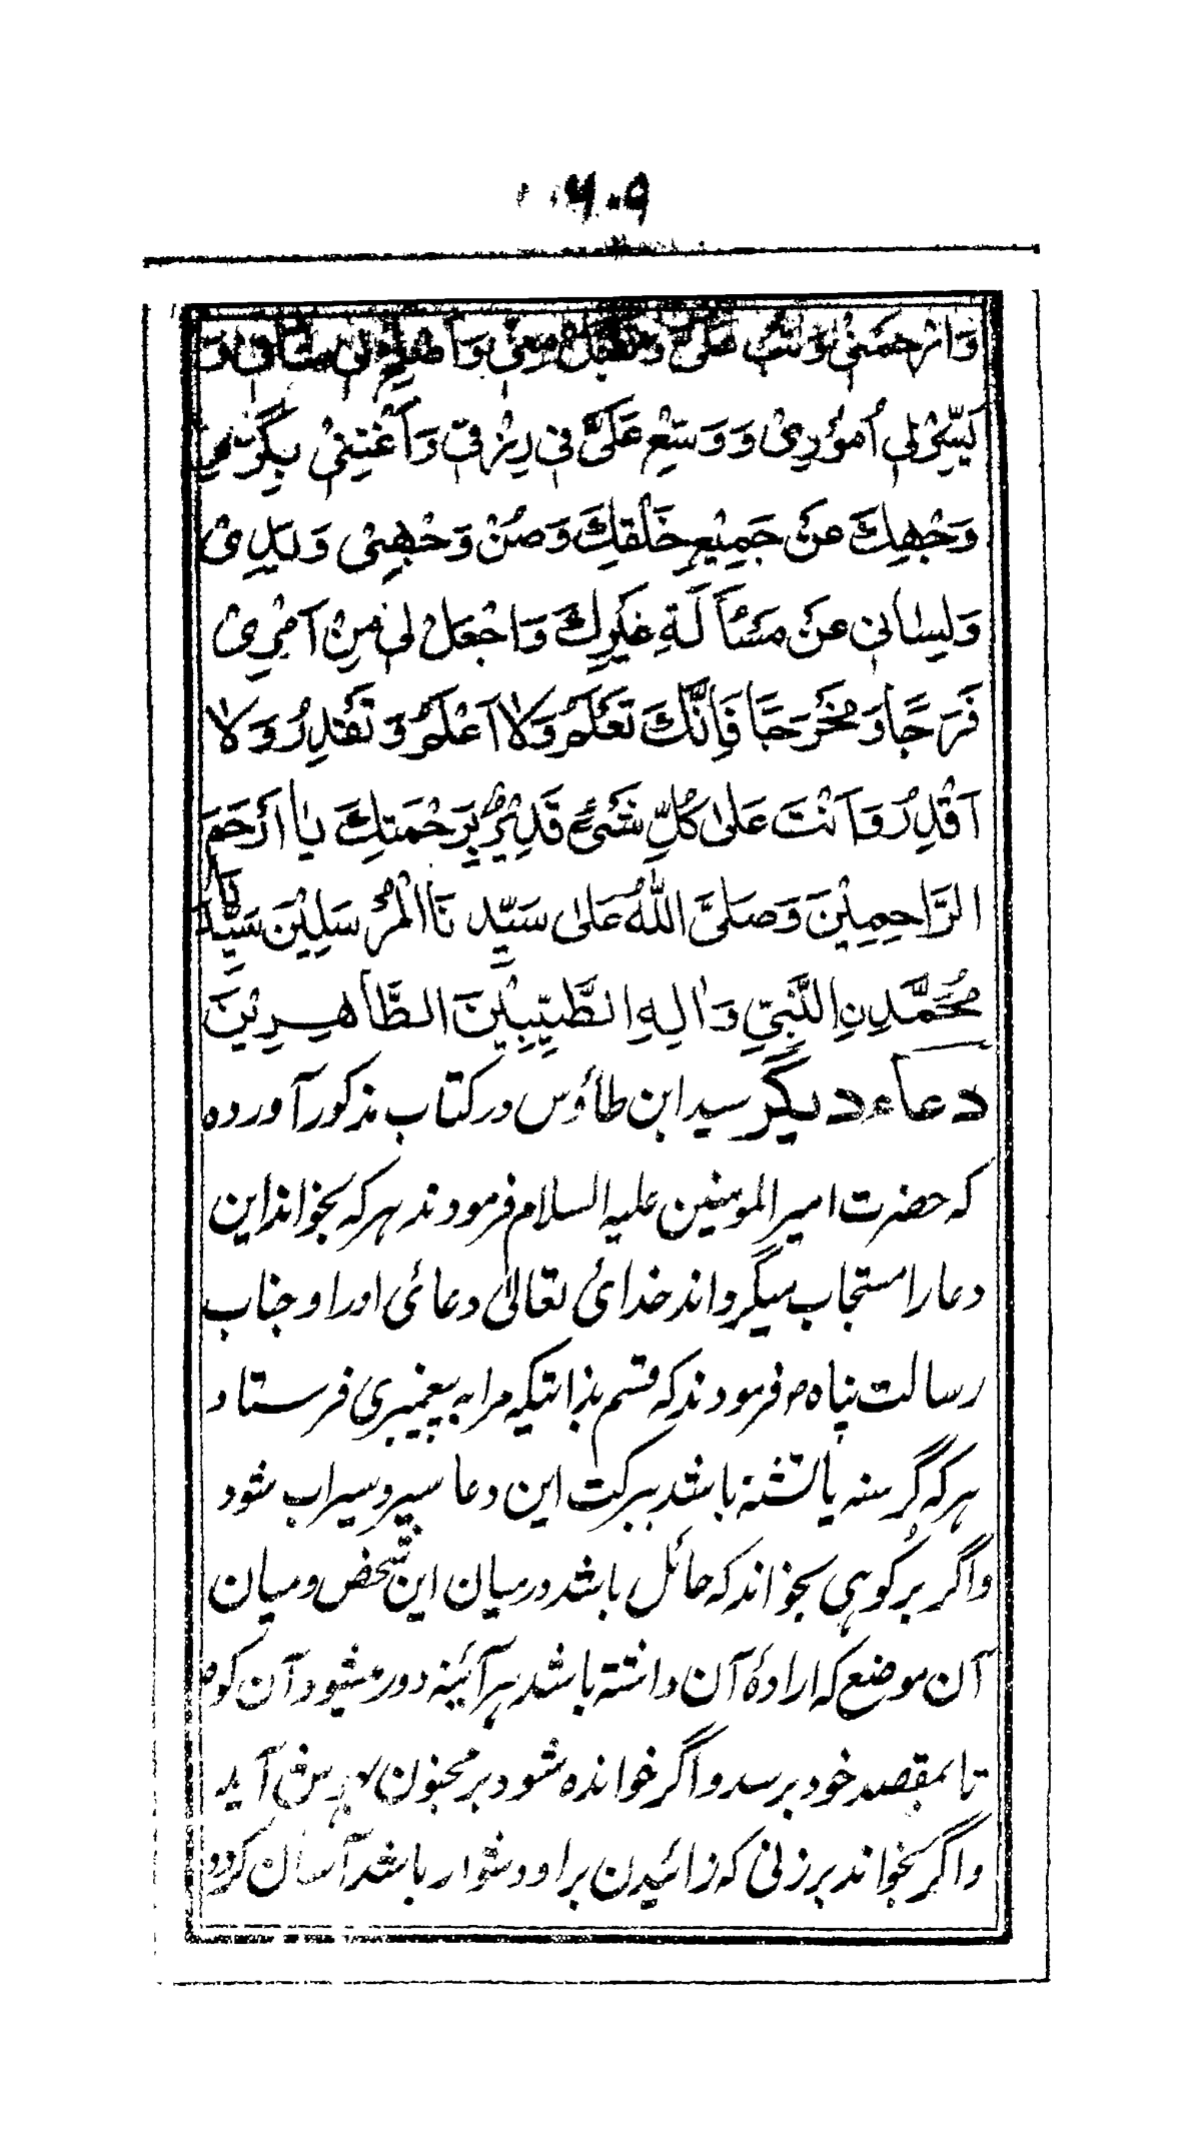 ۶۰۹
وَارْحَمْنِیْ وَتُبْ عَلَیَّ وَتَقَبَّلْ مِنِّیْ وَاَصْلِحْ لِیْ شَاْنِیْ وَ
یَسِّرْ لِیْ اُمُوْرِیْ وَوَسِّعْ عَلَیَّ فِیْ رِزْقِیْ وَاَغْنِنِیْ بِکَرَمِ
وَجْهِكَ عَنْ جَمِیْعِ خَلْقِكَ وَصُنْ وَجْهِیْ وَیَدِیْ
وَلِسَانِیْ عَنْ مَسْأَلَةِ غَیْرِكَ وَاجْعَلْ لِیْ مِنْ اَمْرِیْ
فَرَجًا وَمَخْرَجًا فَاِنَّكَ تَعْلَمُ وَلَا اَعْلَمُ وَتَقْدِرُ وَلَا
اَقْدِرُ وَاَنْتَ عَلٰی کُلِّ شَیْءٍ قَدِیْرٌ بِرَحْمَتِكَ یَا اَرْحَمَ
الرَّاحِمِیْنَ وَصَلَّی اللّٰهُ عَلٰی سَیِّدِ نَا الْمُرْسَلِیْنَ سَیِّدِنَا
مُحَمَّدِنِ النَّبِیِّ وَاٰلِهِ الطَّیِّبِیْنَ الطَّاهِرِیْنَ
دعاء دیگر سید ابن طاؤس در کتاب مذکور آورده
که حضرت امیر المومنین علیه السلام فرمودند هر که بخواند این
دعا را مستجاب میگرداند خدائ تعالیٰ دعائی او را و جناب
رسالت پناه ص فرمودند که قسم بذاتیکه مرا به پیغمبری فرستاد
هر که گرسنه یا تشنه باشد ببرکت این دعا سیر و سیراب شود
و اگر بر کوهی بخواند که حائل باشد در میان این شخص و میان
آن موضع که ارادۀ آن داشته باشد هر آئینه دور میشود آن کوه
تا بمقصد خود برسد و اگر خوانده شود بر مجنون بهوش آید
و اگر بخواند بر زنی که زائیدن بر او دشوار باشد آسان گردد